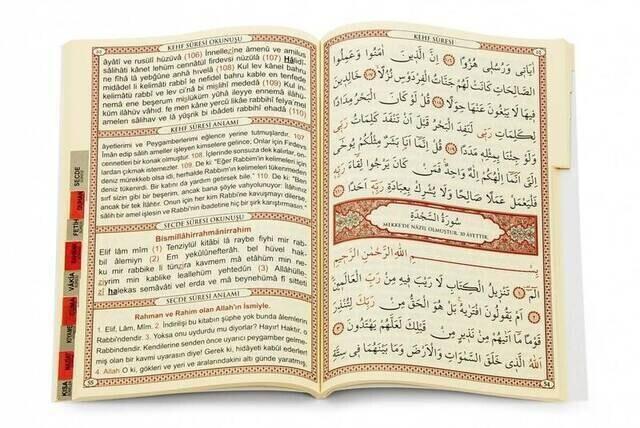 KEHF SÛRESİ OKUNUŞU
âyâtî ve rusulî hüzüvâ (106) İnnellezîne âmenû ve amilus
sâlihâti kânet lehüm cennâtül firdevsi nüzülâ (107) Hâlidî-
ne fîhâ lâ yebğûne anhâ hıvelâ (108) Kul lev kânel bahru
midâdel li kelimâti rabbî le nefidel bahru kable en tenfede
kelimâtü rabbî ve lev ci'nâ bi mislihî mededâ (109) Kul in-
nemâ ene beşerum mislüküm yûhâ ileyye ennemâ ilâhü-
küm ilâhüv vâhid, fe men kâne yercû likâe rabbihî felya'mel
amelen sâlihav ve lâ yüşrik bi ıbâdeti rabbihî ehadâ (110)
KEHF SÛRESİ ANLAMI
âyetlerimi ve Peygamberlerimi eğlence yerine tutmuşlardır. 107
İman edip salih ameller işleyen kimselere gelince; Onlar için Firdevs
cennetleri bir konak olmuştur. 108. İçlerinde sonsuza dek kalırlar, on-
lardan çıkmak istemezler. 109. De ki: "Eğer Rabbim'in kelimeleri için
deniz mürekkeb olsa idi, herhalde Rabbim'in kelimeleri tükenmeden
deniz tükenirdi. Bir katını da yardım getirsek bile." 110. De ki: "Ben
sırf sizin gibi bir beşerim, ancak bana şöyle vahyolunuyor: İlâhınız
ancak bir tek İlâhtır. Onun için her kim Rabbi'ne kavuşmayı dilerse,
sâlih bir amel işlesin ve Rabbi'nin ibadetine hiç bir şirk karıştırmasın."
SECDE SÛRESİ OKUNUŞU
Bismillâhirrahmânirrahîm
Elif lâm mîm (1) Tenzîylül kitâbi lâ raybe fîhi mir rab-
bil âlemiyn (2) Em yekûlûnefterâh, bel hüvel hak-
ku mir rabbike li tünzira kavmem mâ etâhüm min ne-
ziyrim min kablike leallehüm yehtedûn (3) Allâhülle-
zî halekas semâvâti vel erda ve mâ beynehümâ fî sitteti
SECDE SÛRESİ ANLAMI
Rahman ve Rahim olan Allah'ın İsmiyle.
1. Elif, Lâm, Mîm. 2. İndirilişi bu kitabın şüphe yok bunda âlemlerin
Rabbi'ndendir. 3. Yoksa onu uydurdu mu diyorlar? Hayır! Haktır, o
Rabbindendir. Kendilerine senden önce uyarıcı peygamber gelme-
miş olan bir kavmi uyarasın diye! Gerek ki, hidâyeti kabûl ederler!
4. Allah O ki, gökleri ve yeri ve aralarındakini altı günde yaratmış.
SECDE
DUHAN
FETH
VÂKIA
CUMA
KIYAME
KISA
KEHF SÛRESİ
اٰيَاتٖي وَرُسُلٖي هُزُوًا ﴿١٠٦﴾ اِنَّ الَّذٖينَ اٰمَنُوا وَعَمِلُوا
الصَّالِحَاتِ كَانَتْ لَهُمْ جَنَّاتُ الْفِرْدَوْسِ نُزُلًا ﴿١٠٧﴾ خَالِدٖينَ
فٖيهَا لَا يَبْغُونَ عَنْهَا حِوَلًا ﴿١٠٨﴾ قُلْ لَوْ كَانَ الْبَحْرُ مِدَادًا
لِكَلِمَاتِ رَبّٖي لَنَفِدَ الْبَحْرُ قَبْلَ اَنْ تَنْفَدَ كَلِمَاتُ رَبّٖي
وَلَوْ جِئْنَا بِمِثْلِهٖ مَدَدًا ﴿١٠٩﴾ قُلْ اِنَّمَا اَنَا بَشَرٌ مِثْلُكُمْ يُوحٰى
اِلَيَّ اَنَّمَا اِلٰهُكُمْ اِلٰهٌ وَاحِدٌ فَمَنْ كَانَ يَرْجُوا لِقَاءَ رَبِّهٖ
فَلْيَعْمَلْ عَمَلًا صَالِحًا وَلَا يُشْرِكْ بِعِبَادَةِ رَبِّهٖ اَحَدًا ﴿١١٠﴾
سُورَةُ السَّجْدَةِ
MEKKE'DE NÂZİL OLMUŞTUR, 30 ÂYETTİR.
بِسْمِ اللّٰهِ الرَّحْمٰنِ الرَّحٖيمِ
الٓمٓ ﴿١﴾ تَنْزٖيلُ الْكِتَابِ لَا رَيْبَ فٖيهِ مِنْ رَبِّ الْعَالَمٖينَ ﴿٢﴾
اَمْ يَقُولُونَ افْتَرٰيهُ بَلْ هُوَ الْحَقُّ مِنْ رَبِّكَ لِتُنْذِرَ
قَوْمًا مَا اَتٰيهُمْ مِنْ نَذٖيرٍ مِنْ قَبْلِكَ لَعَلَّهُمْ يَهْتَدُونَ ﴿٣﴾
اَللّٰهُ الَّذٖي خَلَقَ السَّمٰوَاتِ وَالْاَرْضَ وَمَا بَيْنَهُمَا فٖي سِتَّةِ